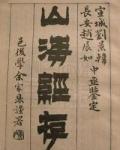 宣城劉
長安趙展如 中丞鑒定
山海經存
邑後學余家鼎謹署